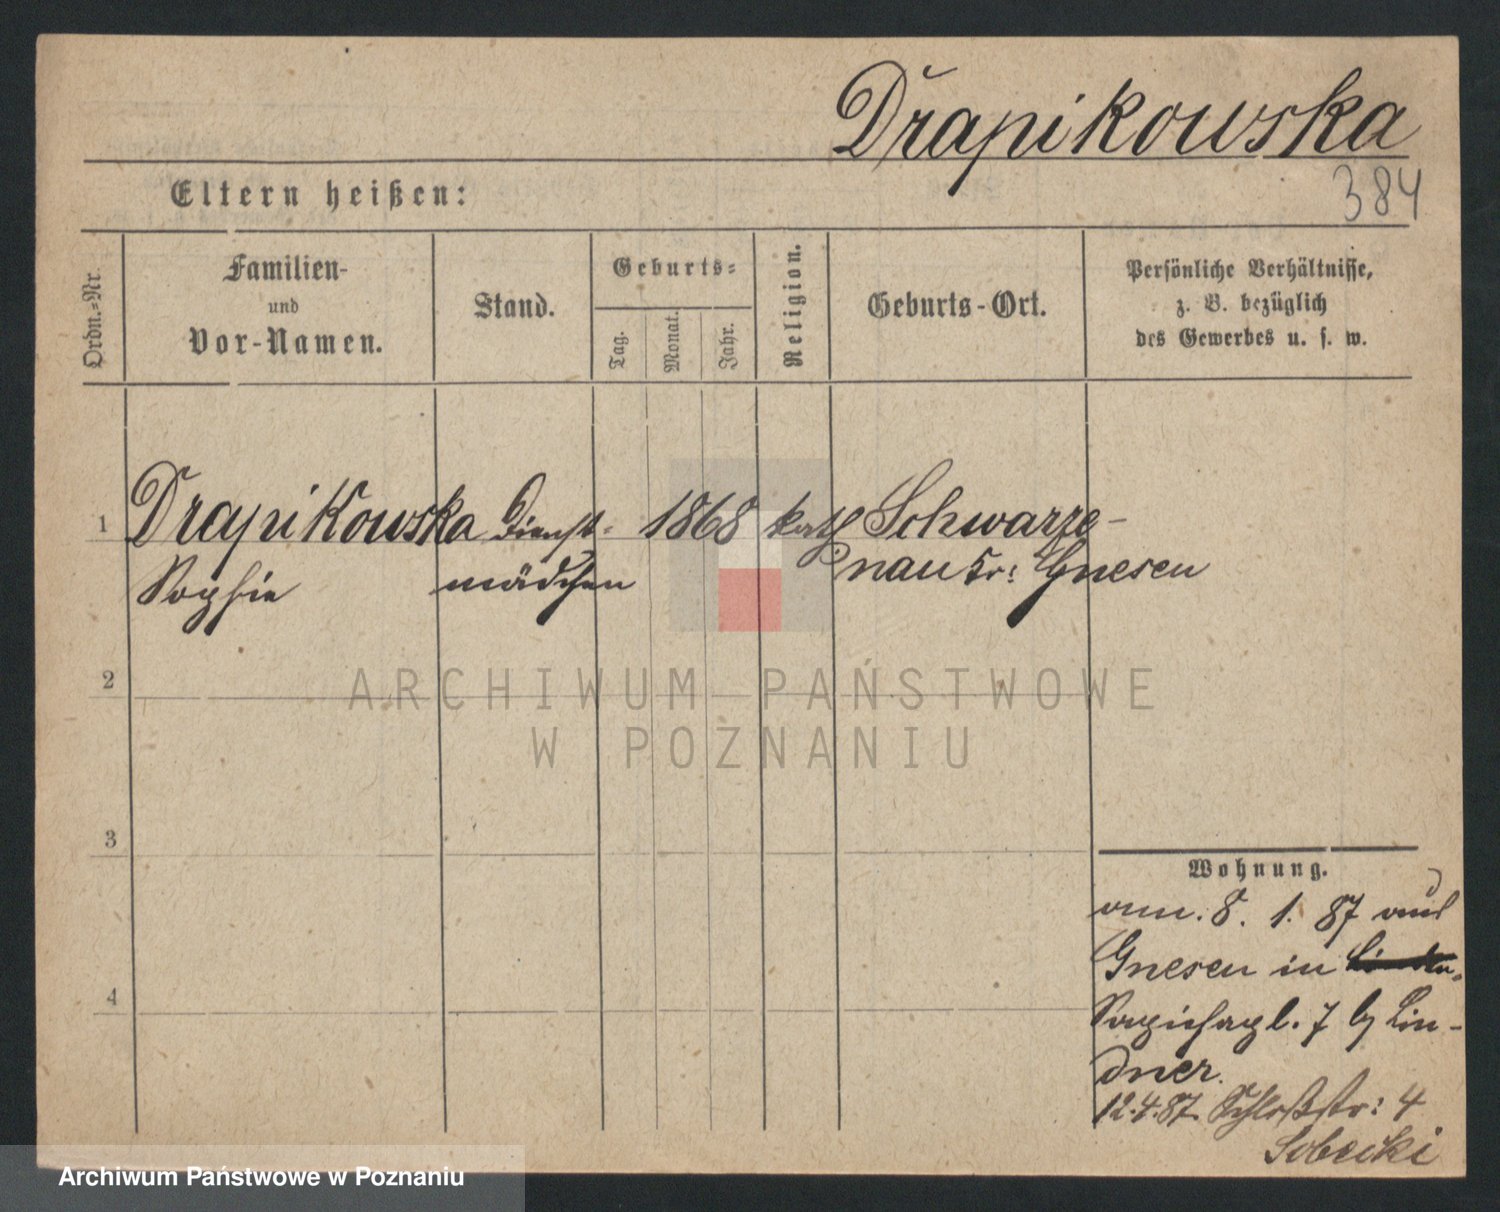 Drapikowska
384
Eltern heißen:
Ordn.-Nr.
Familien-
und
Vor-Namen.
Stand.
Geburts-
Tag.
Monat.
Jahr.
Religion.
Geburts-Ort.
Persönliche Verhältnisse,
z. B. bezüglich
des Gewerbes u. s. w.
1 Drapikowska Dienst- 1868 kath Schwarze-
Sophie mädchen nau Kr: Gnesen
2
3
4
Wohnung.
8. 1. 87 aus
Gnesen in
Sapiehapl. 7 b/ Lin-
dner.
12.4.87. Schloßstr: 4
Sobecki
ARCHIWUM PAŃSTWOWE
W POZNANIU
Archiwum Państwowe w Poznaniu